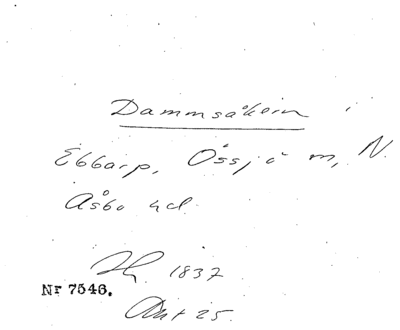 Dammsåkern i
Ebbarp, Össjö m, N.
Åsbo hd.
1837
Nr 7546.
Akt 25.